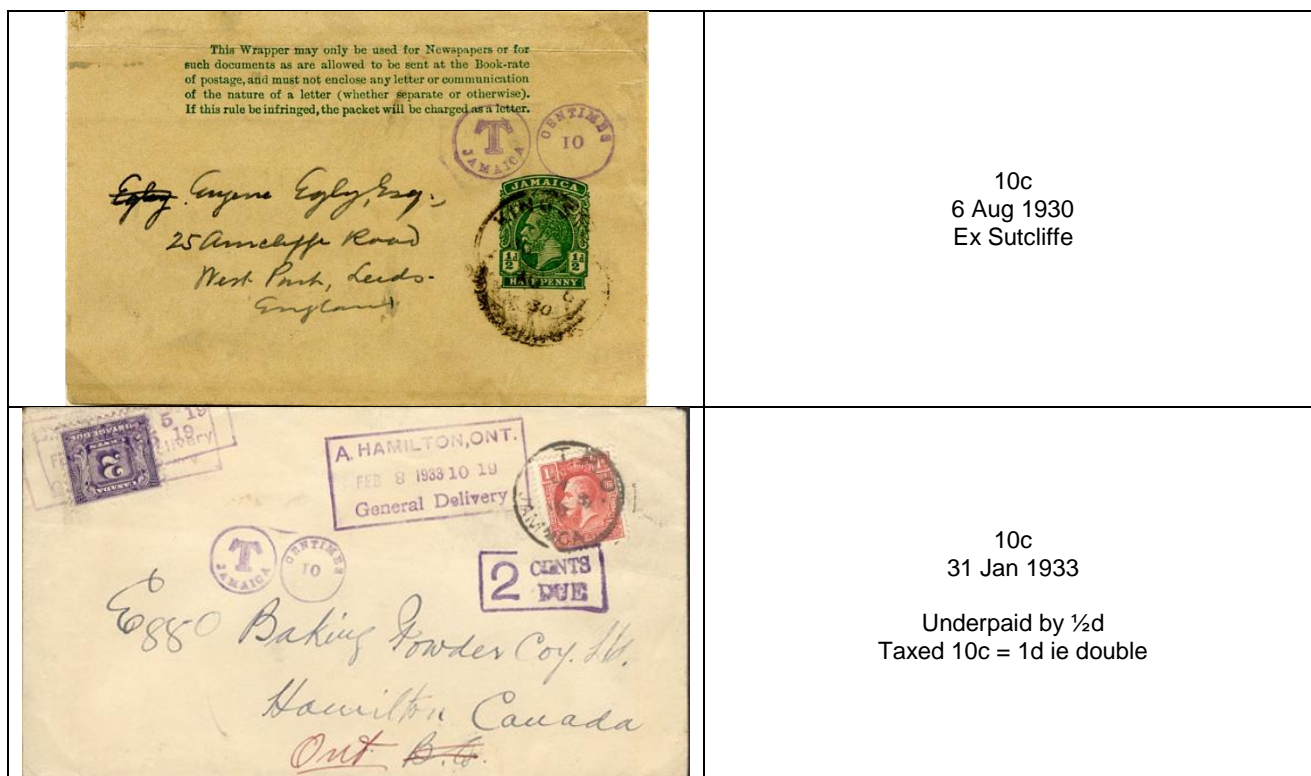 This Wrapper may only be used for Newspapers or for
such documents as are allowed to be sent at the Book-rate
of postage, and must not enclose any letter or communication
of the nature of a letter (whether separate or otherwise).
If this rule be infringed, the packet will be charged as a letter.
T
JAMAICA
CENTIMES
10
JAMAICA
½d ½d
HALFPENNY
30
Egly Eugene Egly, Esq.,
25 Arncliffe Road
West Park, Leeds.
England
10c
6 Aug 1930
Ex Sutcliffe
CANADA
2
POSTAGE DUE
5 19
A. HAMILTON, ONT.
FEB 8 1933 10 19
General Delivery
JAMAICA
T
JAMAICA
CENTIMES
10
2 CENTS
DUE
Eggo Baking Powder Coy. Ld.
Hamilton Canada
Ont B.C.
10c
31 Jan 1933
Underpaid by ½d
Taxed 10c = 1d ie double